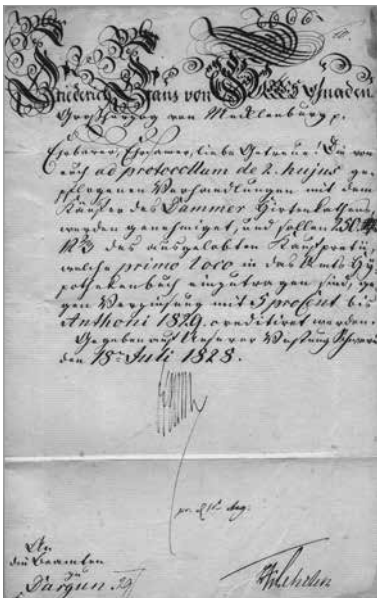 Friederich Franz von Gottes Gnaden
Großherzog von Mecklenburg p.
Ehrbarer, Ehrsamer, liebe Getreue! Die von
euch ad protocollum de 2. hujus ge-
pflogenen Verhandlungen mit dem
Käufer des Dammer Hirtenkathens
werden genehmiget, und sollen 250
des ausgelobten Kaufpretii,
welche primo loco in das Amts Hy-
pothekenbuch einzutragen sind, ge-
gen Verzinsung mit 5 proCent bis
Anthoni 1829. creditiret werden.
Gegeben auf Unserer Vestung Schwerin
den 18ten Juli 1828.
An
die Beamten
zu
Dargun